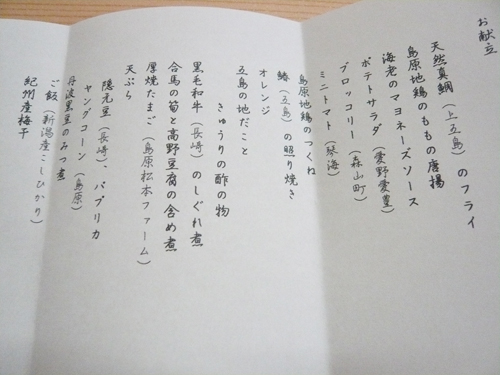 お献立
天然真鯛(上五島)のフライ
島原地鶏のももの唐揚
海老のマヨネーズソース
ポテトサラダ(愛野愛菜)
ブロッコリー(森山町)
ミニトマト(琴海)
島原地鶏のつくね
鰆(五島)の照り焼き
オレンジ
五島の地だこと
きゅうりの酢の物
黒毛和牛(長崎)のしぐれ煮
合馬の筍と高野豆腐の含め煮
厚焼たまご(島原松本ファーム)
天ぷら
隠元豆(長崎)、パプリカ
ヤングコーン(島原)
丹波黒豆のみつ煮
ご飯(新潟産こしひかり)
紀州産梅干